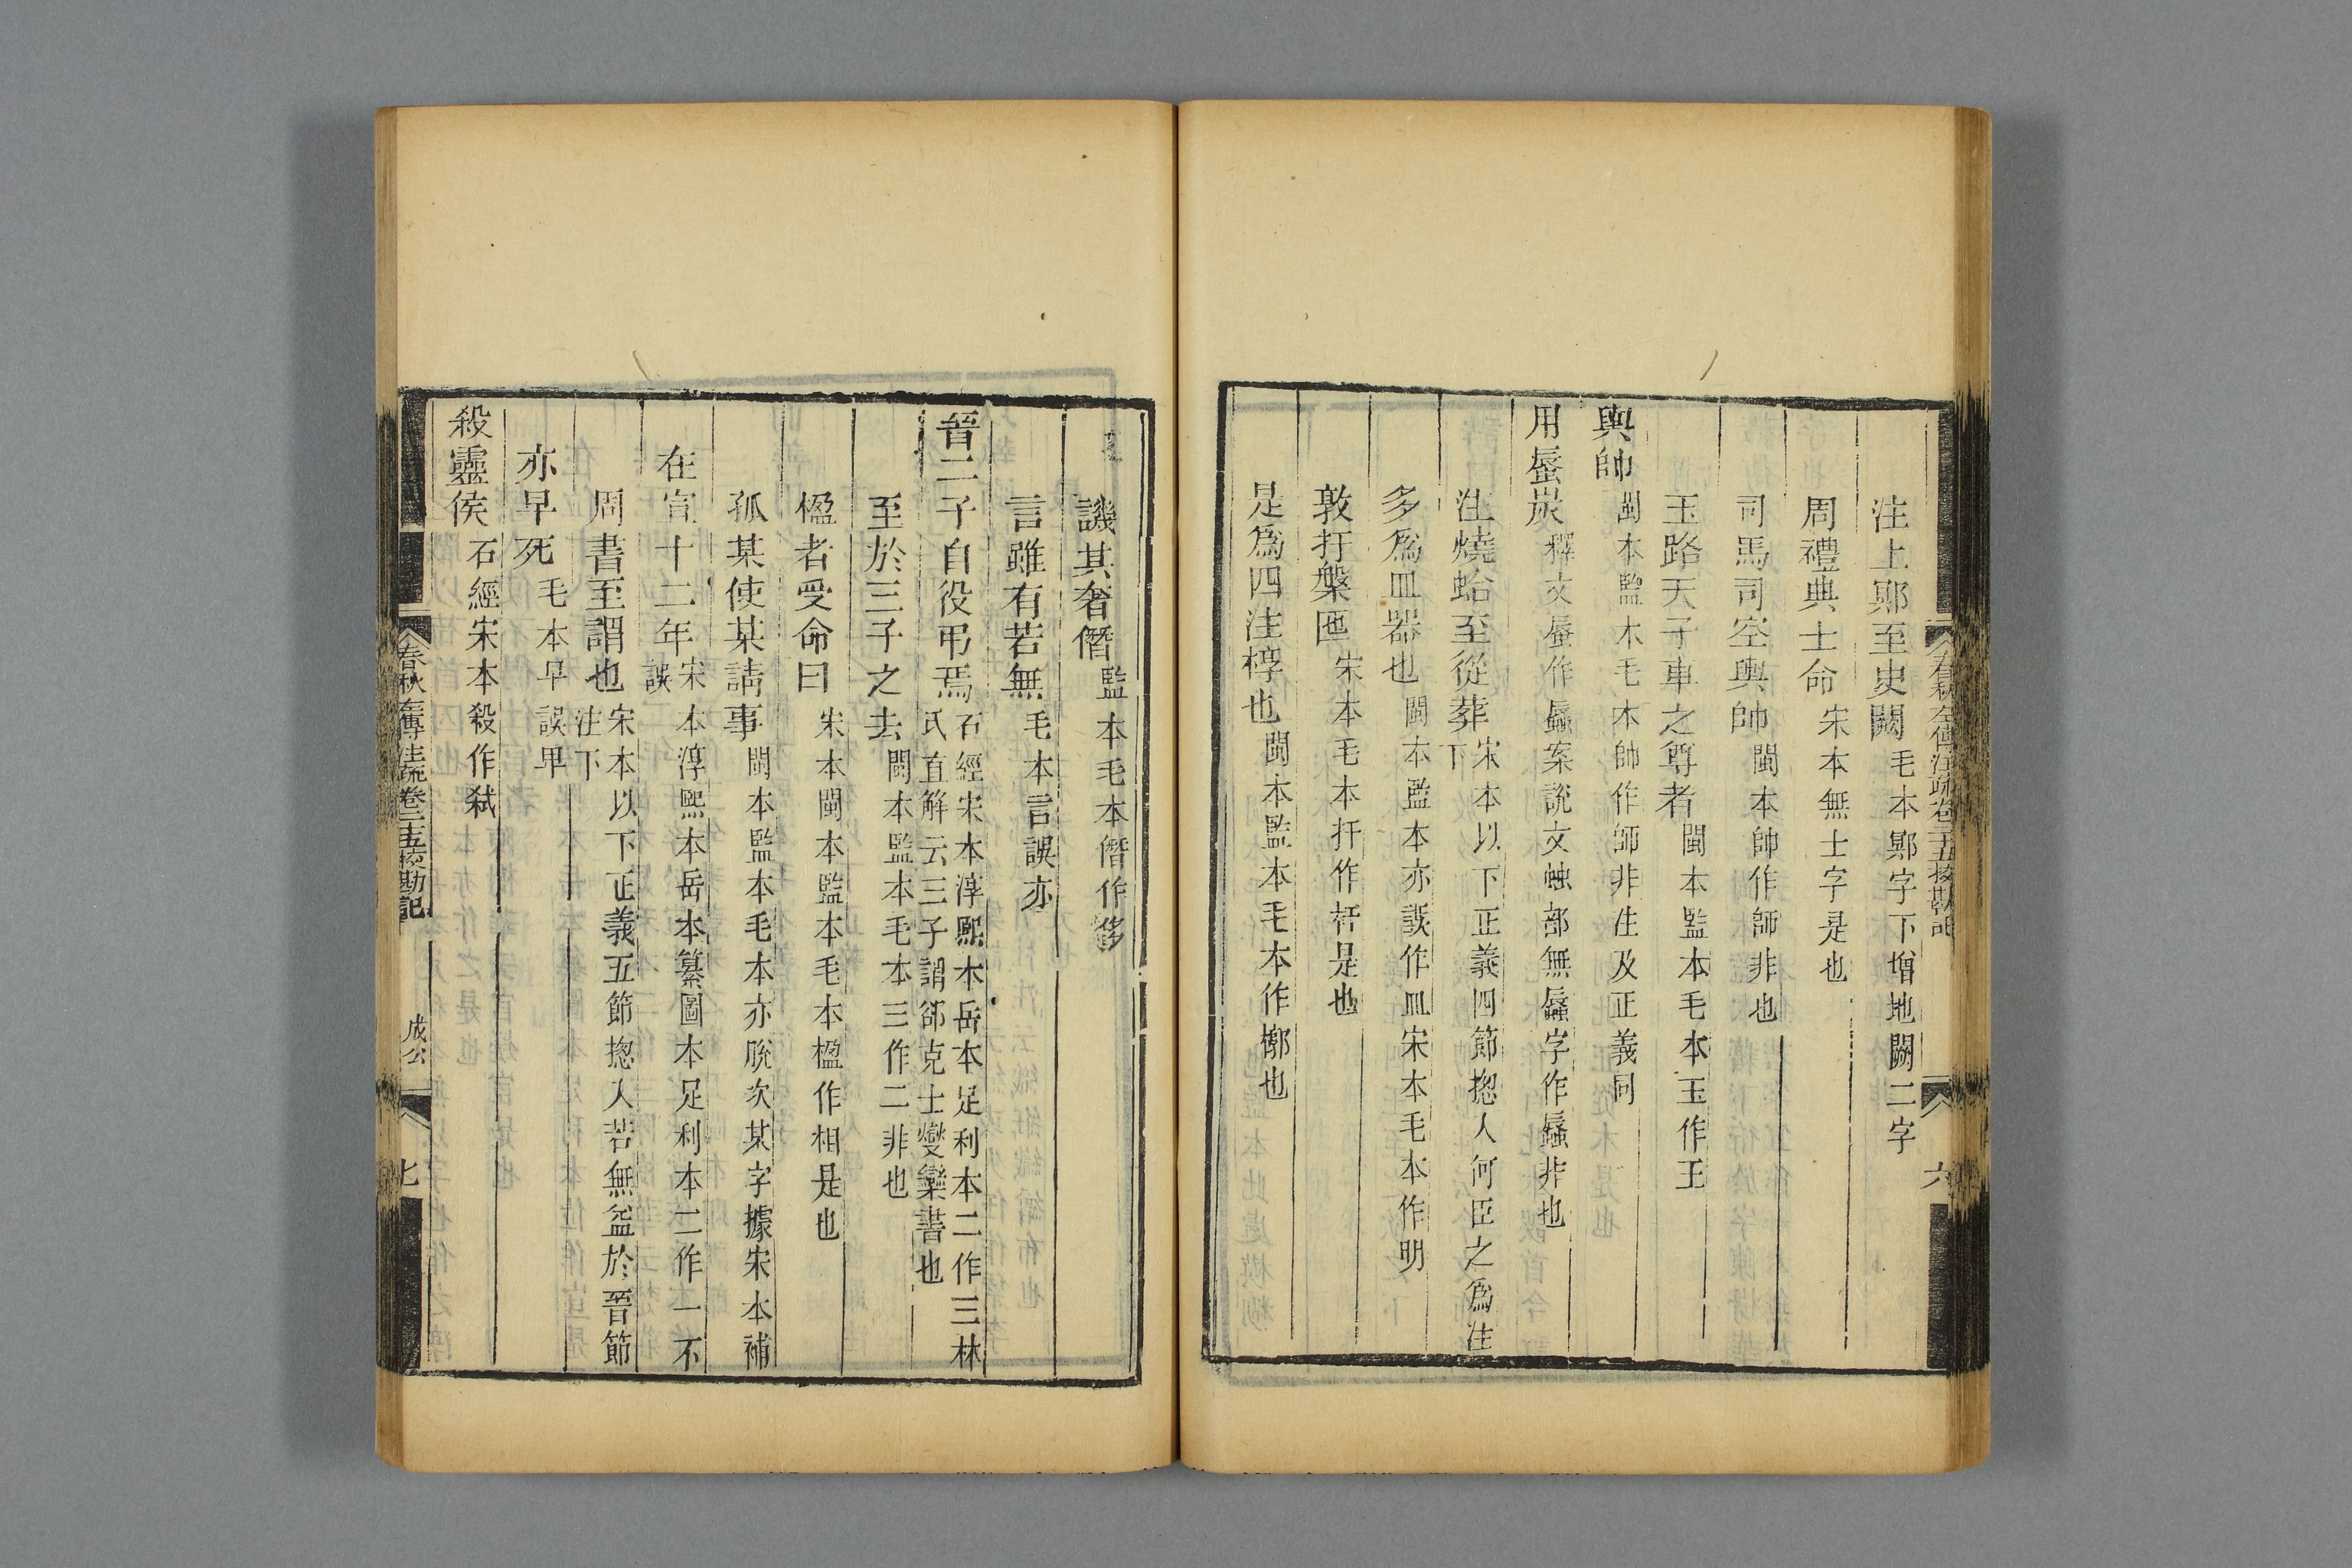 春秋左傳注疏卷二十五挍勘記
六
注上鄍至史闕毛本鄍字下增地闕二字
周禮典士命宋本無士字是也
司馬司空輿帥閩本帥作師非也
玉路天子車之尊者閩本監本毛本玉作王
輿帥閩本監本毛本帥作師非注及正義同
用蜃炭釋文蜃作蟁案說文䖵部無蟁字作蟁非也
注燒蛤至從葬宋本以下正義四節揔入何臣之爲注下
多爲皿器也閩本監本亦誤作皿宋本毛本作明
敦扞槃匜宋本毛本扞作杅是也
是爲四注椁也閩本監本毛本作槨也
譏其奢僭監本毛本僭作侈
言雖有若無毛本言誤亦
晉二子自役弔焉石經宋本淳熙本岳本足利本二作三林
氏直解云三子謂郤克士燮欒書也
至於三子之去閩本監本毛本三作二非也
楹者受命曰宋本閩本監本毛本楹作相是也
孤某使某請事閩本監本毛本亦脫次某字據宋本補
在宣十二年宋本淳熙本岳本纂圖本足利本二作一不
誤
周書至謂也宋本以下正義五節揔入若無益於晉節
注下
亦早死毛本早誤畢
殺靈侯石經宋本殺作弒
春秋左傳注疏卷二十五挍勘記
成公
七